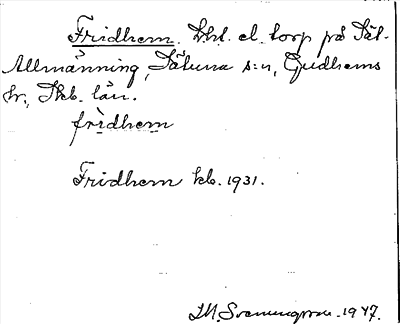 Fridhem. Lht. el. torp på Säl-
Allmänning, Sätuna s:n, Gudhems
hr, Skb. län.
fridhem
Fridhem kb. 1931.
1947.